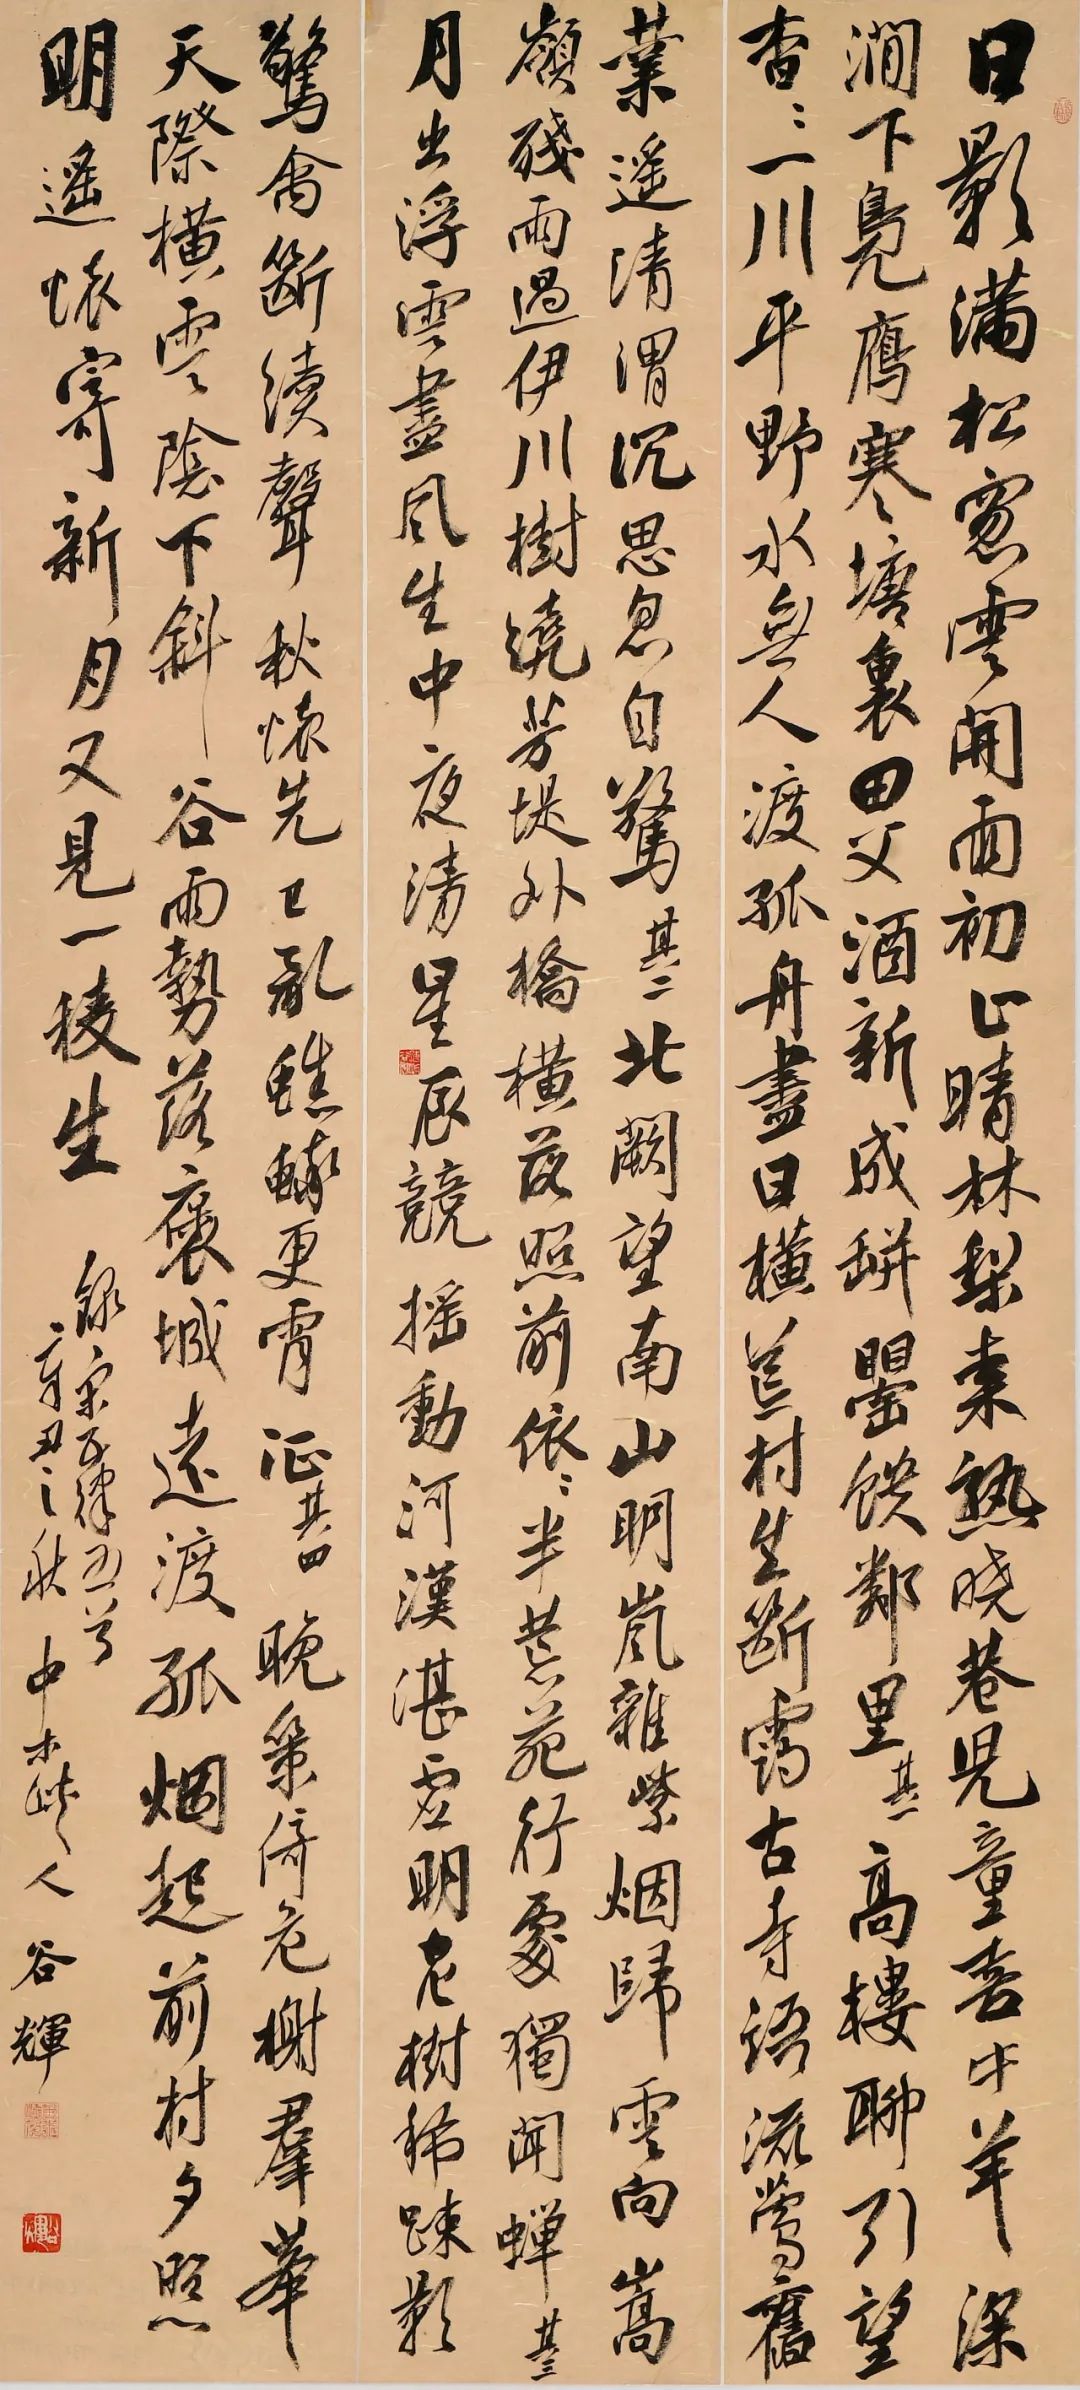 日影满松窗雲開雨初止晴林梨棗熟曉巷兒童喜牛羊深
澗下鳧鴈寒塘裏田父酒新成缾罌饋鄰里其一高樓聊引望
杳〻一川平野水無人渡孤舟盡日橫荒村生斷靄古寺語流鶯舊
業遥清渭沉思忽自驚其二北闕望南山明嵐雜紫烟歸雲向嵩
嶺殘雨過伊川樹繞芳堤外橋橫落照前依〻半荒苑行處獨聞蟬其三
月出浮雲盡風生中夜清星辰競摇動河漢湛虚明老樹稀疎影
驚禽斷續聲秋懷先已亂蟋蟀更宵征其四晚策倚危榭羣峯
天際橫雲陰下斜谷雨勢落褒城遠渡孤烟起前村夕照
明遥懷寄新月又見一稜生
録宋五律五首
辛丑之秋中木人谷輝